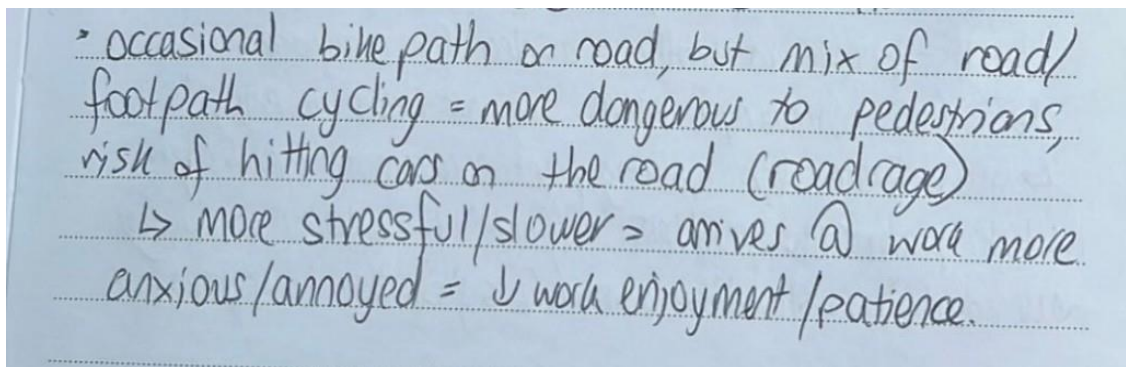 • occasional bike path on road, but mix of road/
footpath cycling = more dangerous to pedestrians,
risk of hitting cars on the road (roadrage)
↳ more stressful/slower = arrives @ work more
anxious/annoyed = ↓ work enjoyment/patience.